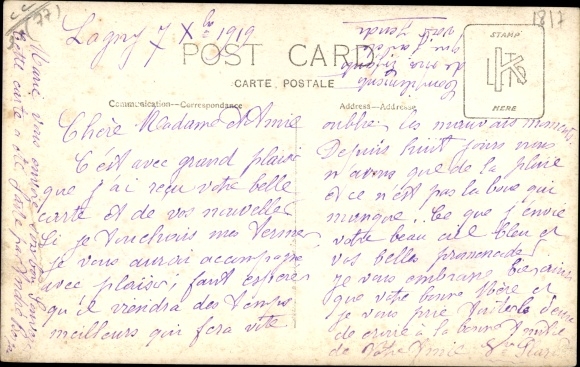 Lagny 7 Xbre 1919
POST CARD
CARTE POSTALE
Communication--Correspondance
Address--Addresse
STAMP
HERE
1817
Chère Madame et Amie
C'est avec grand plaisir
que j'ai reçu votre belle
carte et de vos nouvelles
Si je touchais mes termes
je vous aurai accompagné
avec plaisir, faut espérer
qu'il viendra des temps
meilleurs qui fera vite
oublier les mauvais moments
Depuis huit jours nous
n'avons que de la pluie
et ce n'est pas la boue qui
manque. Ce que j'envie
votre beau ciel bleu et
vos belles promenades
je vous embrasse bien ainsi
que votre bonne Mère et
je vous prie
de croire à la bonne Amitié
de votre Amie
Marie vous envoie
cette carte a été faite par